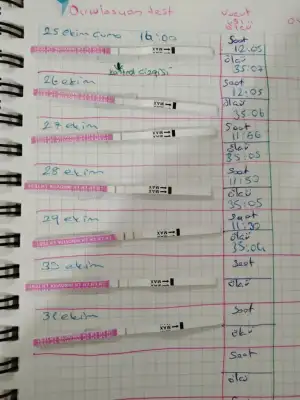 Ovulasyon test
vücut
ısı
ölçü
25 ekim cuma 16:00
Saat
12:05
ölçü
35:07
kontrol çizgisi
26 ekim
Saat
12:05
ölçü
35:06
27 ekim
Saat
11:56
ölçü
35:05
28 ekim
Saat
11:52
ölçü
35:05
29 ekim
Saat
11:30
ölçü
35:04
30 ekim
Saat
ölçü
31 ekim
Saat
ölçü
Saat
ölçü
MAX
MAX
MAX
MAX
MAX
MAX
MAX